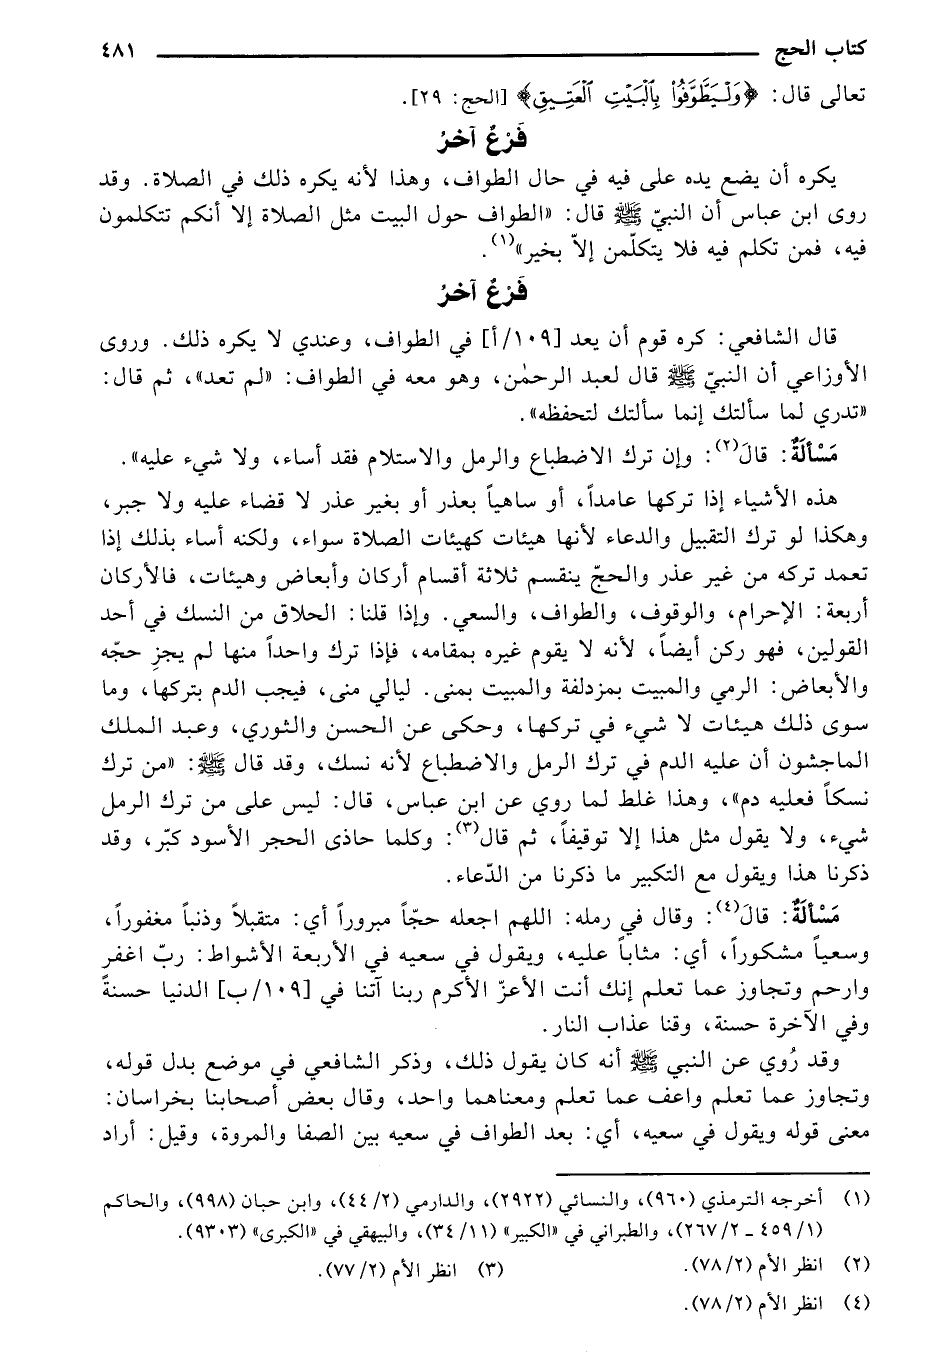 كتاب الحج ٤٨١
تعالى قال: ﴿وَلْيَطَّوَّفُوا بِالْبَيْتِ الْعَتِيقِ﴾ [الحج: ٢٩].
فَرْعٌ آخرُ
يكره أن يضع يده على فيه في حال الطواف، وهذا لأنه يكره ذلك في الصلاة. وقد
روى ابن عباس أن النبيّ ﷺ قال: «الطواف حول البيت مثل الصلاة إلا أنكم تتكلمون
فيه، فمن تكلم فيه فلا يتكلّمن إلاّ بخير»(١).
فَرْعٌ آخرُ
قال الشافعي: كره قوم أن يعد [١٠٩/أ] في الطواف، وعندي لا يكره ذلك. وروى
الأوزاعي أن النبيّ ﷺ قال لعبد الرحمٰن، وهو معه في الطواف: «لم تعد»، ثم قال:
«تدري لما سألتك إنما سألتك لتحفظه».
مَسْأَلَةٌ: قالَ(٢): وإن ترك الاضطباع والرمل والاستلام فقد أساء، ولا شيء عليه».
هذه الأشياء إذا تركها عامداً، أو ساهياً بعذر أو بغير عذر لا قضاء عليه ولا جبر،
وهكذا لو ترك التقبيل والدعاء لأنها هيئات كهيئات الصلاة سواء، ولكنه أساء بذلك إذا
تعمد تركه من غير عذر والحجّ ينقسم ثلاثة أقسام أركان وأبعاض وهيئات، فالأركان
أربعة: الإحرام، والوقوف، والطواف، والسعي. وإذا قلنا: الحلاق من النسك في أحد
القولين، فهو ركن أيضاً، لأنه لا يقوم غيره بمقامه، فإذا ترك واحداً منها لم يجزِ حجّه
والأبعاض: الرمي والمبيت بمزدلفة والمبيت بمنى. ليالي منى، فيجب الدم بتركها، وما
سوى ذلك هيئات لا شيء في تركها، وحكى عن الحسن والثوري، وعبد الملك
الماجشون أن عليه الدم في ترك الرمل والاضطباع لأنه نسك، وقد قال ﷺ: «من ترك
نسكاً فعليه دم»، وهذا غلط لما روي عن ابن عباس، قال: ليس على من ترك الرمل
شيء، ولا يقول مثل هذا إلا توقيفاً، ثم قال(٣): وكلما حاذى الحجر الأسود كبّر، وقد
ذكرنا هذا ويقول مع التكبير ما ذكرنا من الدّعاء.
مَسْأَلَةٌ: قالَ(٤): وقال في رمله: اللهم اجعله حجّاً مبروراً أي: متقبلاً وذنباً مغفوراً،
وسعياً مشكوراً، أي: مثاباً عليه، ويقول في سعيه في الأربعة الأشواط: ربّ اغفر
وارحم وتجاوز عما تعلم إنك أنت الأعزّ الأكرم ربنا آتنا في [١٠٩/ب] الدنيا حسنةً
وفي الآخرة حسنة، وقنا عذاب النار.
وقد رُوي عن النبي ﷺ أنه كان يقول ذلك، وذكر الشافعي في موضع بدل قوله،
وتجاوز عما تعلم واعف عما تعلم ومعناهما واحد، وقال بعض أصحابنا بخراسان:
معنى قوله ويقول في سعيه، أي: بعد الطواف في سعيه بين الصفا والمروة، وقيل: أراد
(١) أخرجه الترمذي (٩٦٠)، والنسائي (٢٩٢٢)، والدارمي (٢/٤٤)، وابن حبان (٩٩٨)، والحاكم
(١/٤٥٩ ـ ٢/٢٦٧)، والطبراني في «الكبير» (١١/٣٤)، والبيهقي في «الكبرى» (٩٣٠٣).
(٢) انظر الأم (٢/٧٨). (٣) انظر الأم (٢/٧٧).
(٤) انظر الأم (٢/٧٨).